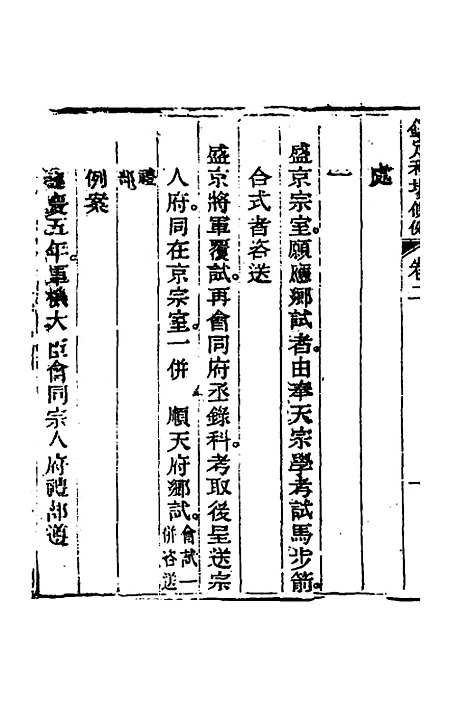 欽定科場條例 卷二
處
一
盛京宗室願應鄉試者由奉天宗學考試馬步箭
合式者咨送
盛京將軍覆試再會同府丞錄科考取後呈送宗
人府同在京宗室一併 順天府鄉試會試一併咨送
禮部
例案
嘉慶五年軍機大臣會同宗人府禮部遵